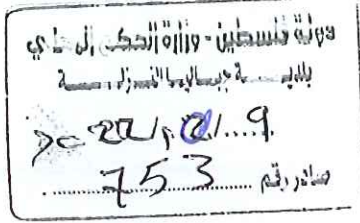 دولة فلسطين - وزارة الحكم المحلي
بلدية جباليا النزلة
2022/2/9
صادر رقم 753